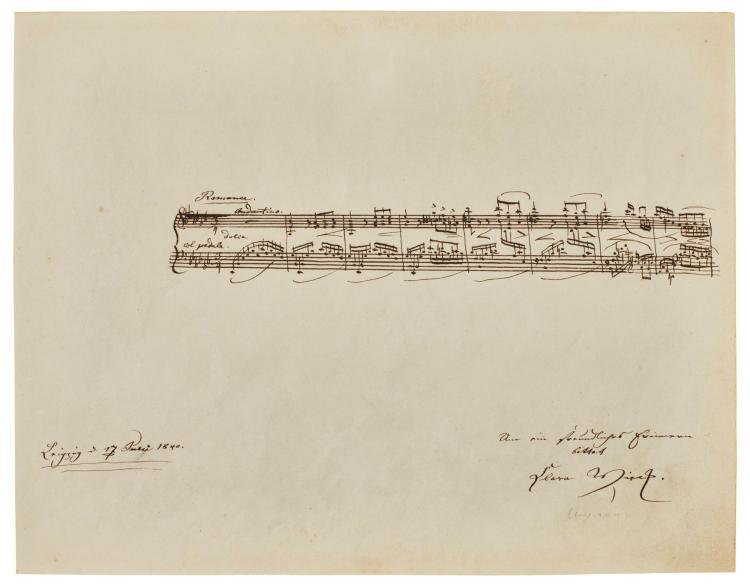 Romance.
Andantino.
dolce
col pedale.
Leipzig d. 17 July 1840.
Um ein freundliches Erinnern
bittet
Clara Wieck.